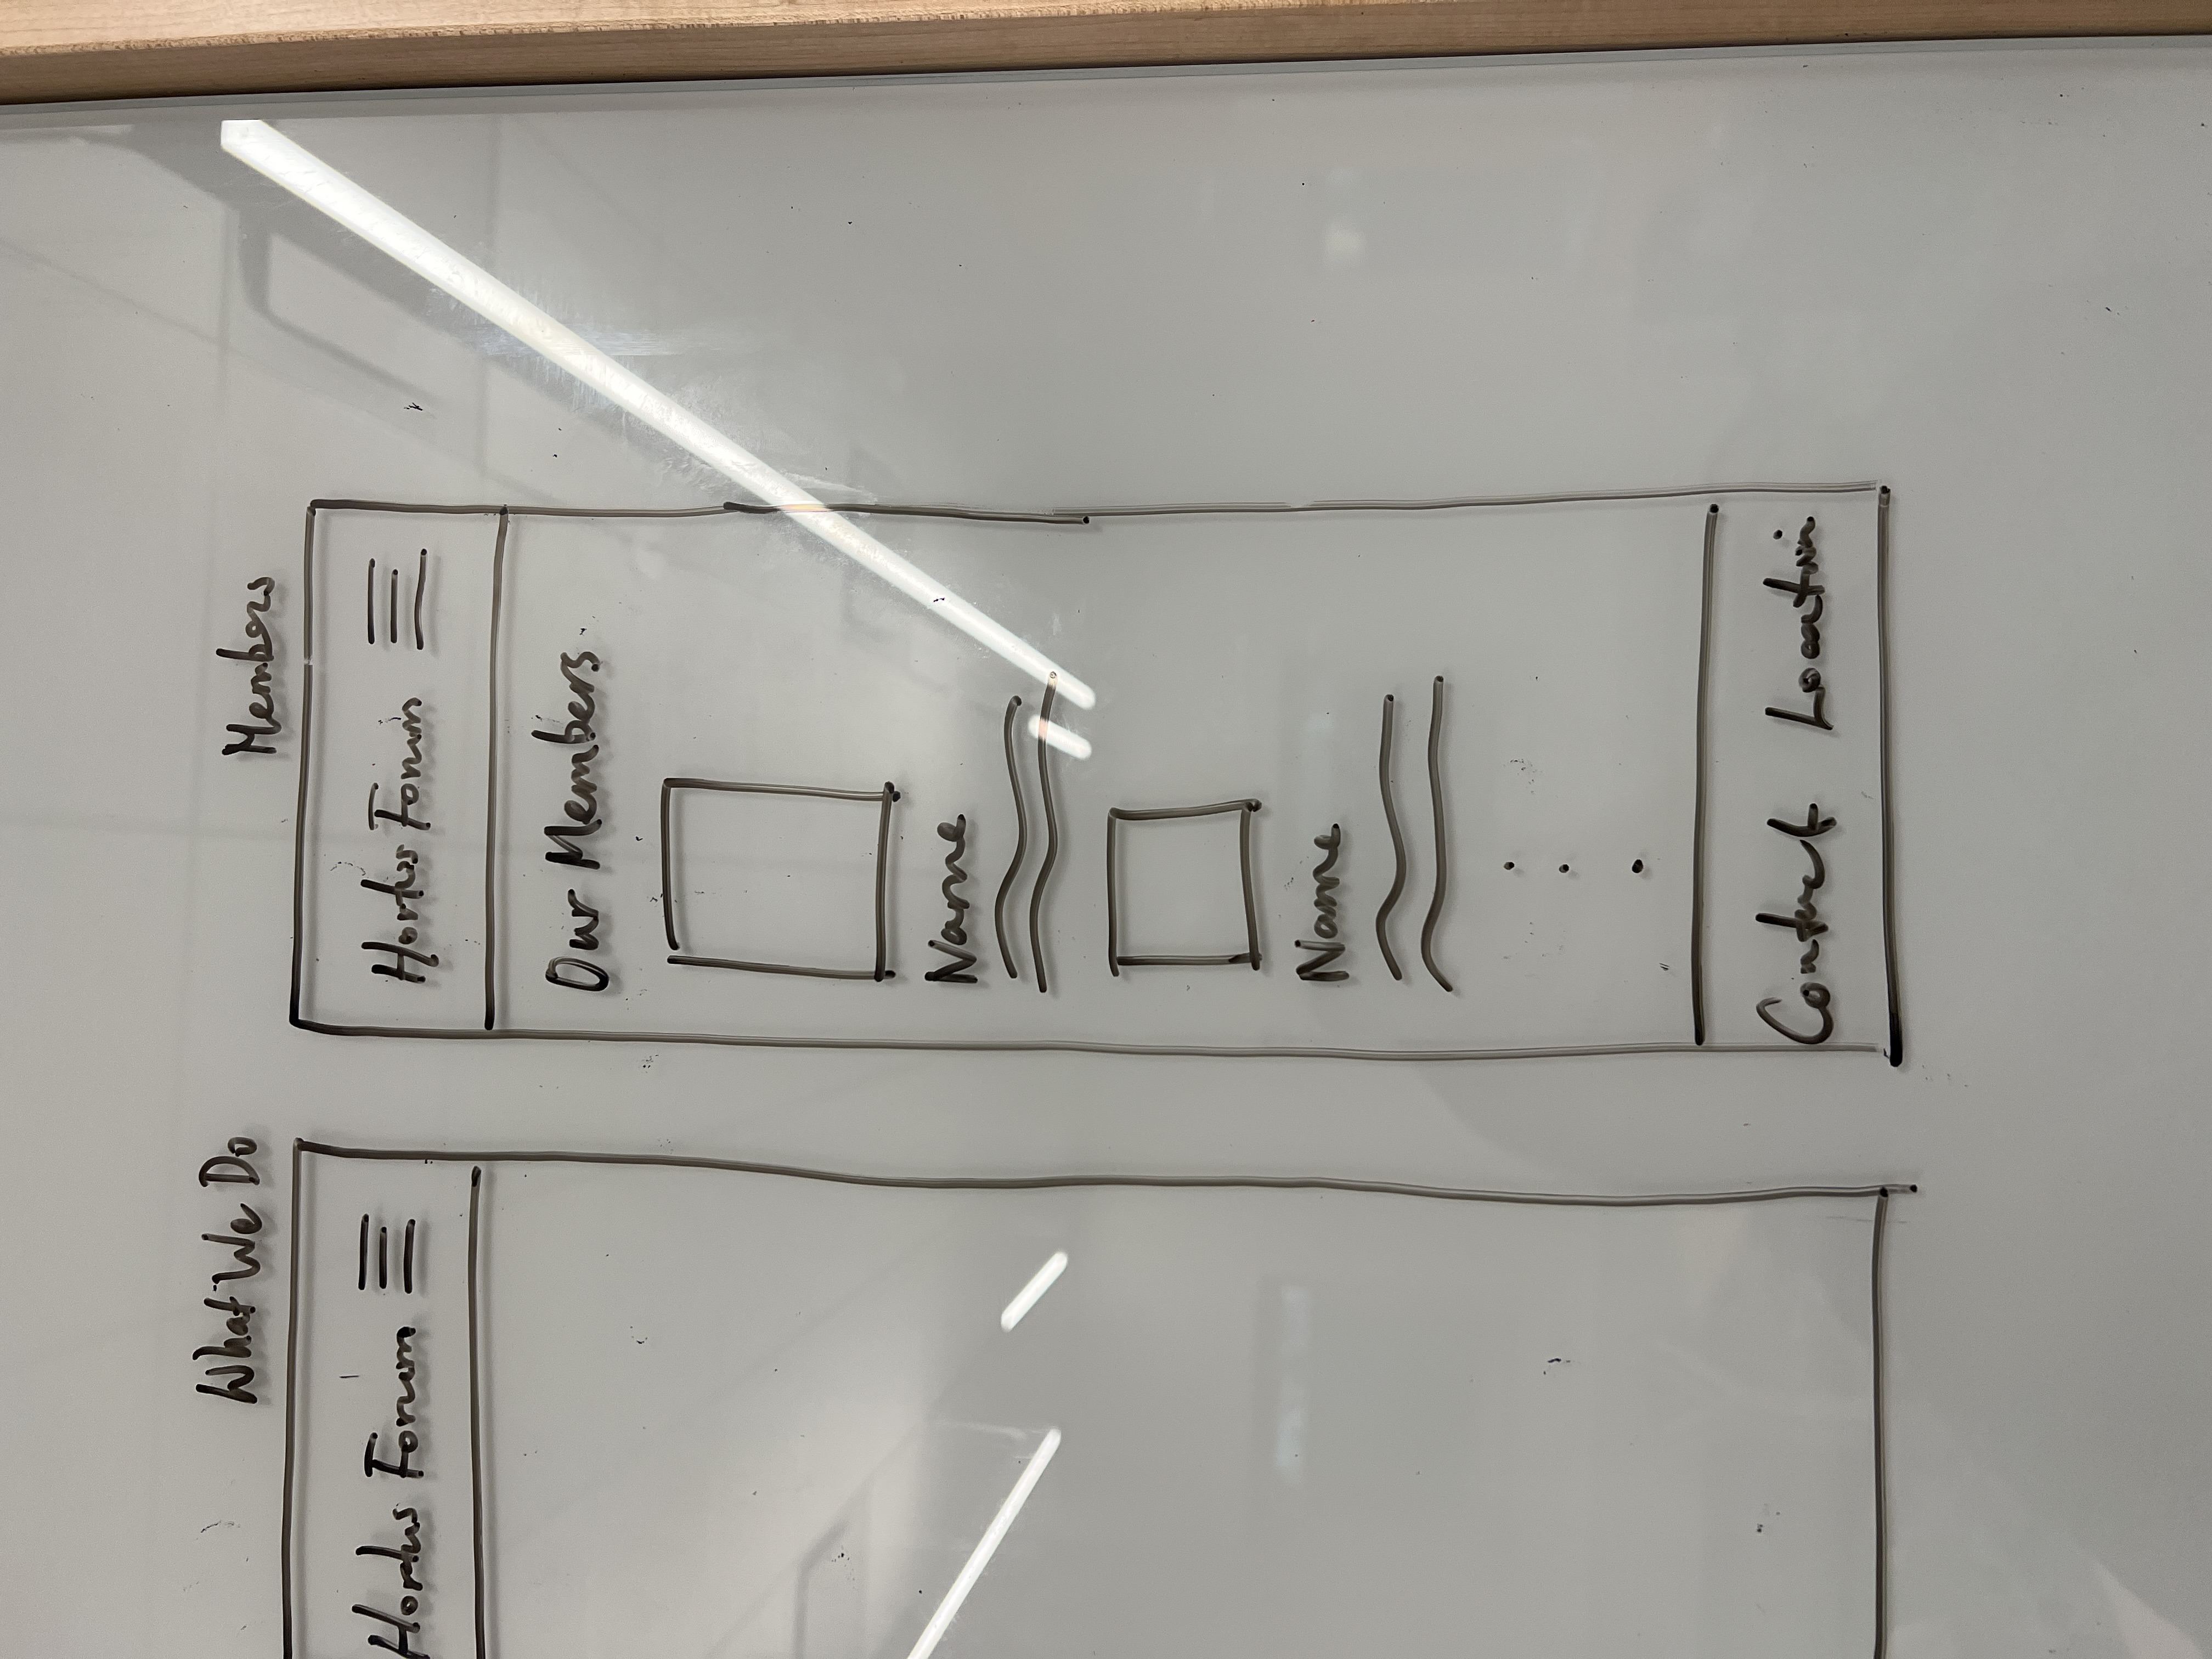 What We Do
Hortus Forum
Members
Hortus Forum
Our Members
Name
Name
Contact Location